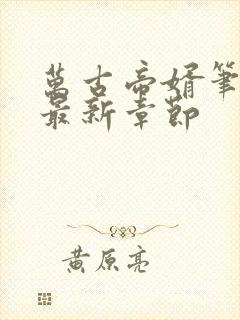 萬古帝婿筆
最新章節
黃原亮